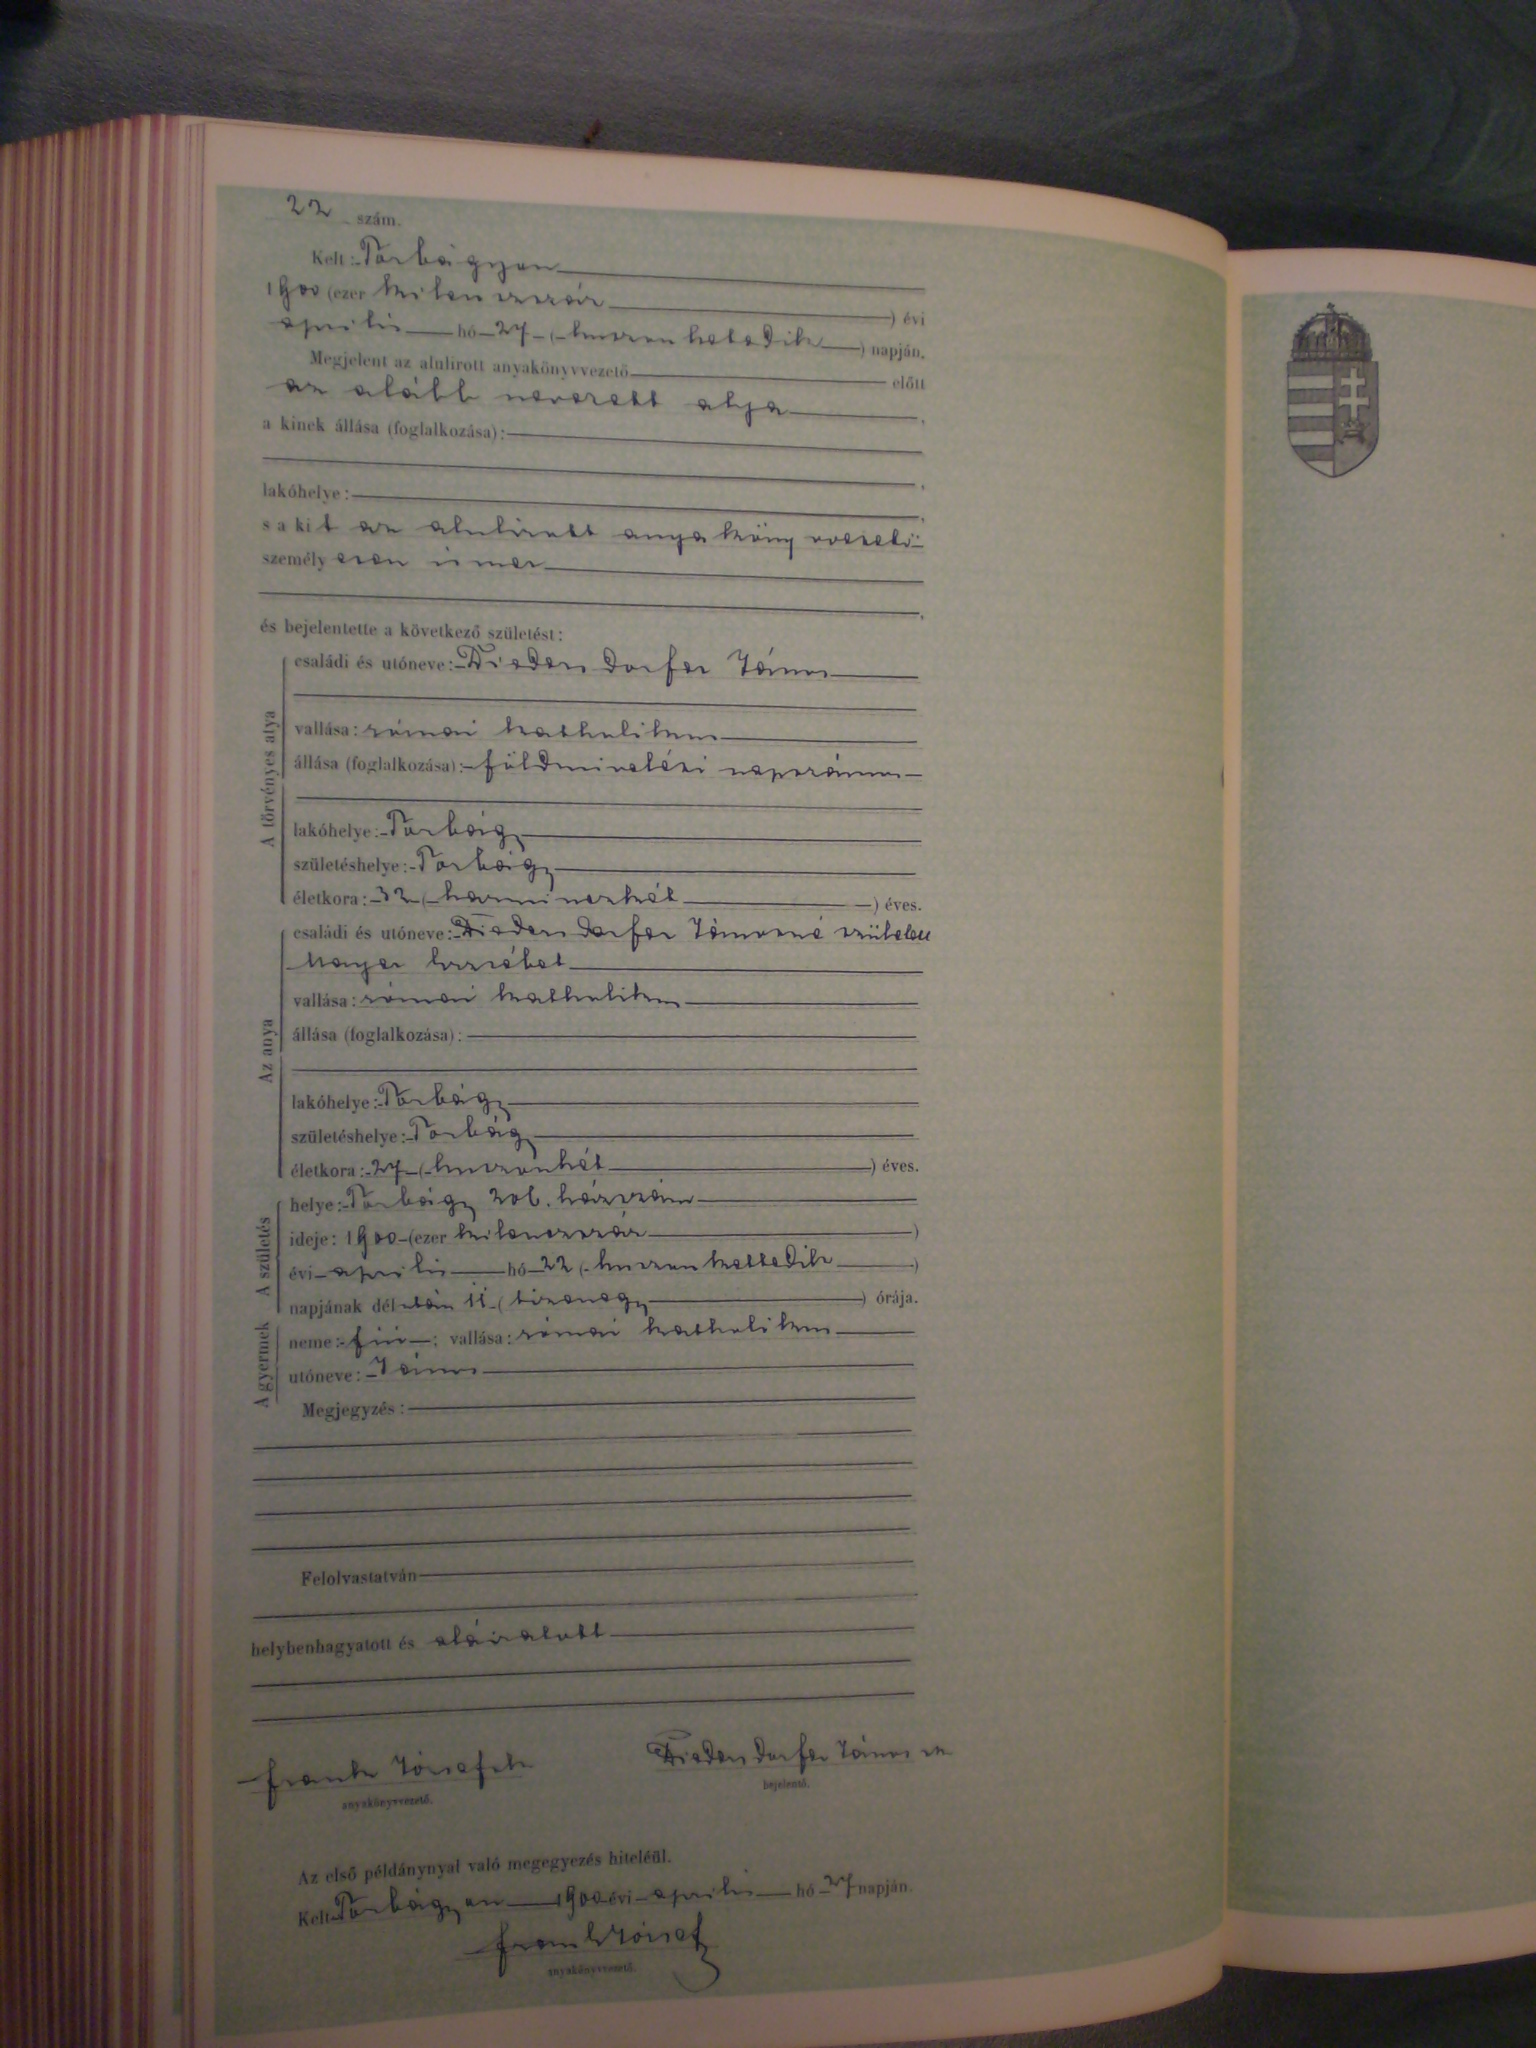 22 szám.
Kelt: Torbágyon
1900 (ezer kilenczszáz) évi
április hó 27 (huszonhetedik) napján,
Megjelent az alulirott anyakönyvvezető előtt
az alább nevezett atya,
a kinek állása (foglalkozása):
lakóhelye:
s a kit az alulirott anyakönyvvezető
személyesen ismer
és bejelentette a következő születést:
A törvényes atya
családi és utóneve: Diedersdorfer János
vallása: római katholikus
állása (foglalkozása): földmivelési napszámos
lakóhelye: Torbágy
születéshelye: Torbágy
életkora: 32 (harminczkét) éves.
Az anya
családi és utóneve: Diedersdorfer Jánosné született
Mayer Erzsébet
vallása: római katholikus
állása (foglalkozása):
lakóhelye: Torbágy
születéshelye: Torbágy
életkora: 27 (huszonhét) éves.
A születés
helye: Torbágy 206. házszám
ideje: 1900 (ezer kilenczszáz)
évi április hó 22 (huszonkettedik)
napjának délután 11 (tizenegy) órája.
A gyermek
neme: fiú; vallása: római katholikus
utóneve: János
Megjegyzés:
Felolvastatván
helybenhagyatott és aláiratott
Frank József sk
anyakönyvvezető.
Diedersdorfer János sk
bejelentő.
Az első példánynyal való megegyezés hiteléül.
Kelt Torbágyon 1900 évi április hó 27 napján.
Frank József
anyakönyvvezető.